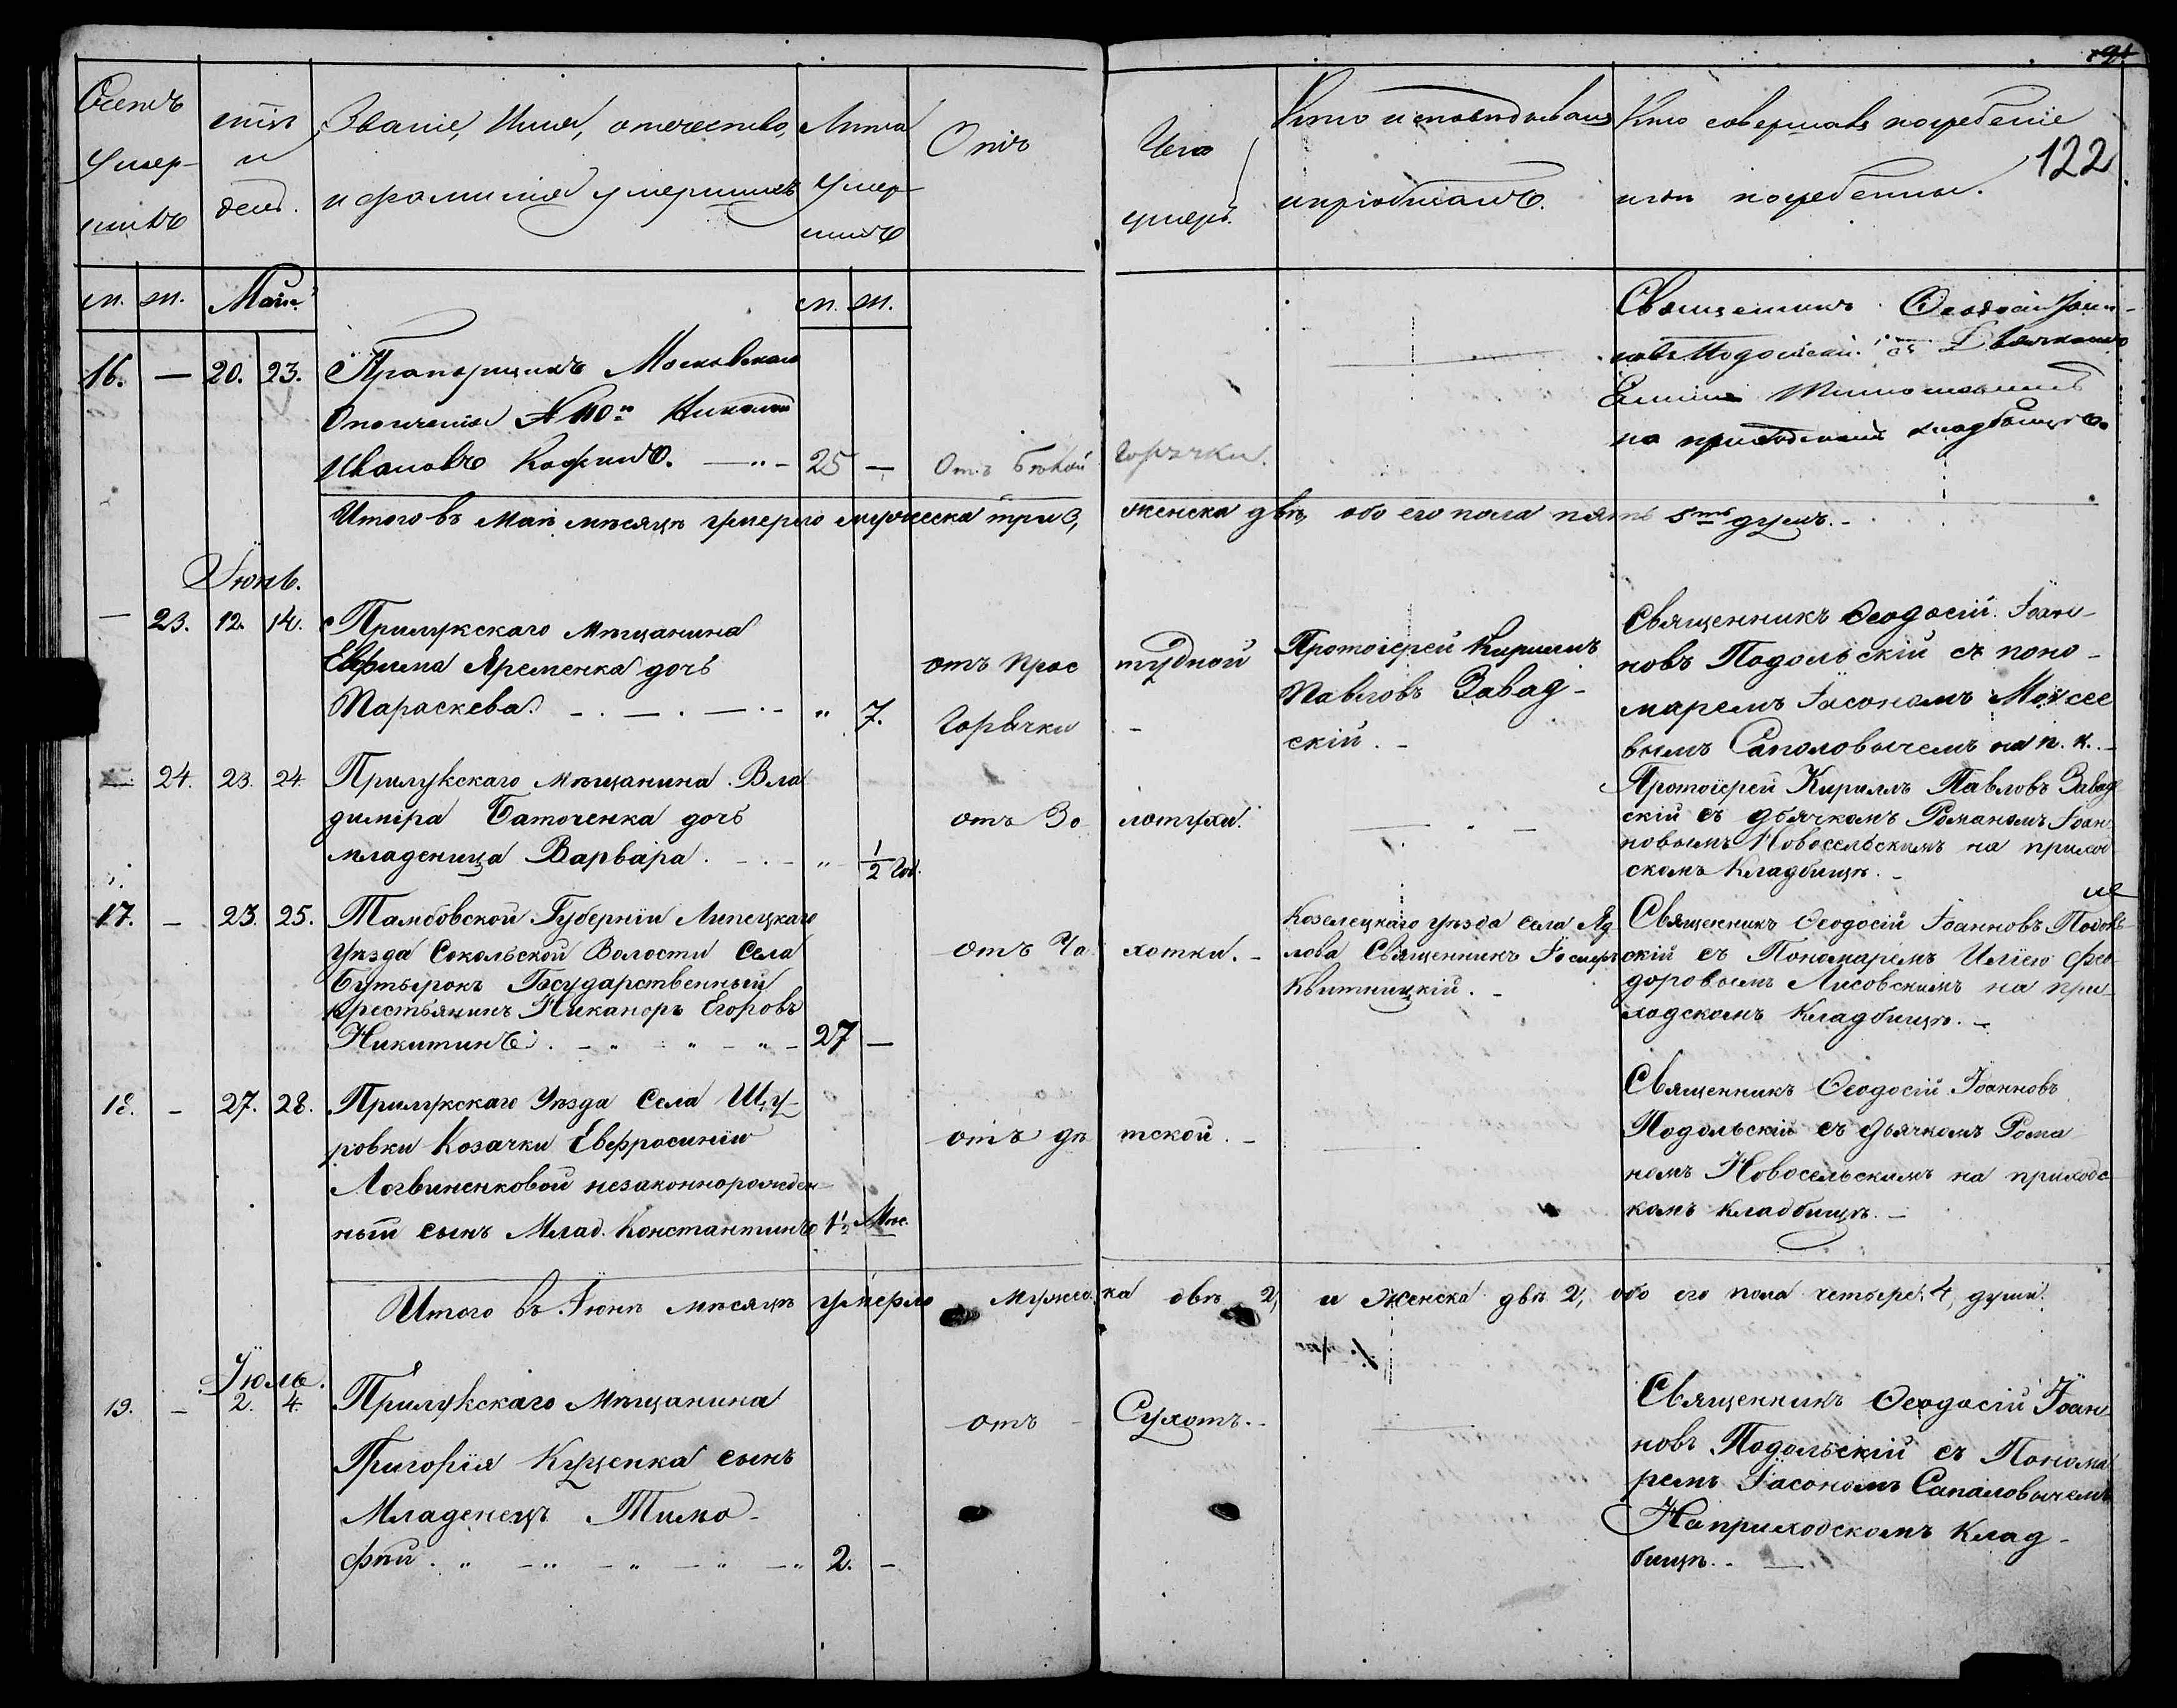 122
Счетъ умер-шихъ
м. ж.
Мѣсяцъ и день.
Званіе, Имя, отчество,
и фамилія умершихъ
Лѣта умер-шихъ
м. ж.
Отъ Чего умеръ.
Кто исповѣдывалъ
и пріобщалъ.
Кто совершалъ погребеніе
и гдѣ погребены.
Май.
16. — 20. 23.
Прапорщикъ Московскаго
Ополченія № 10го Николай
Ивановъ 25 —
Отъ бѣлой Горячки.
Священникъ Ѳеодосій Іоан-
новъ Подольскій съ Дьячкомъ
на приходскомъ кладбищѣ.
Итого въ Маѣ мѣсяцѣ умерло мужеска три 3, женска двѣ, обо его пола пять 5ть душъ. -
Іюнь.
— 23. 12. 14.
Прилукскаго мѣщанина
Евфима Яременка дочь
Параскева. - . — . — . - „ 7.
отъ прос тудной
Горячки -
Протоіерей Кириллъ
Павловъ Завад-
скій. -
Священникъ Ѳеодосій Іоан-
новъ Подольскій съ поно-
маремъ Іасономъ Моисее
вымъ Саполовычемъ на п. к. -
— 24. 23. 24.
Прилукскаго мѣщанина Вла
диміра Баточенка дочь
младеница Варвара. - . - „ 1/2 год.
отъ Зо лотухи.
Протоіерей Кириллъ Павловъ Завад
скій съ дьячкомъ Романомъ Іоан
новымъ Новосельскимъ на приход
скомъ кладбищѣ. -
17. — 23. 25.
Тамбовской Губерніи Липецкаго
уѣзда Сокольской Волости Села
Бутырокъ Государственный
крестьянинъ Никаноръ Егоровъ
Никитинъ. - „ - „ - „ - 27 —
отъ Ча хотки. -
Козелецкаго уѣзда села Яд
лова Священникъ Іосифъ
Квитницкій. -
Священникъ Ѳеодосій Іоанновъ Подоль
скій съ Пономаремъ Иліею Фео
доровымъ Лисовскимъ на при
ходскомъ Кладбищѣ. -
18. — 27. 28.
Прилукскаго Уѣзда Села Щу-
ровки Козачки Евфросиніи
Логвиненковой незаконнорожден-
ный сынъ Млад. Константинъ 1 1/2 Мѣс.
отъ дѣ тской. -
Священникъ Ѳеодосій Іоанновъ
Подольскій съ Дьячкомъ Рома
номъ Новосельскимъ на приходс
комъ кладбищѣ. -
Итого въ Іюнѣ мѣсяцѣ умерло мужес ка двѣ 2, и женска двѣ 2, обо его пола четыре 4, души.
Іюль.
19. — 2. 4.
Прилукскаго Мѣщанина
Григорія Куценка сынъ
Младенецъ Тимо-
фѣй. „ - „ - „ - „ - „ 2. -
отъ - Сухотъ. -
Священникъ Ѳеодосій Іоан
новъ Подольскій съ Понома
ремъ Іасономъ Сапаловычемъ
На приходскомъ Клад-
бищѣ. - —